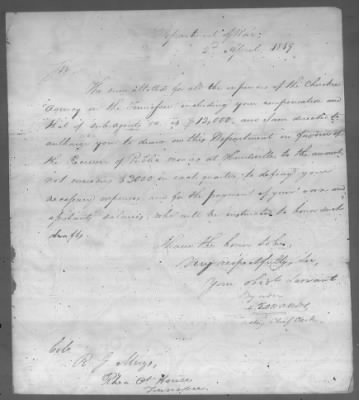 Department of War,
2d April, 1819
Sir
The sum allotted for all the expenses of the Cherokee
agency in the Tennessee including your compensation and
that of sub agents &c. is $12,000, and I am directed to
authorize you to draw on this Department in favour of
the Receiver of Public monies at Huntsville to the amount
not exceeding $3000 in each quarter, to defray your
necessary expenses, and for the payment of your own and
assistants salaries, who will be instructed to honor such
drafts.
I have the honor to be,
Very respectfully, Sir,
Your obdt Servant
By order
Edwards
actg Chief Clerk
Colo
R. J. Meigs,
Rhea Ct House,
Tennessee